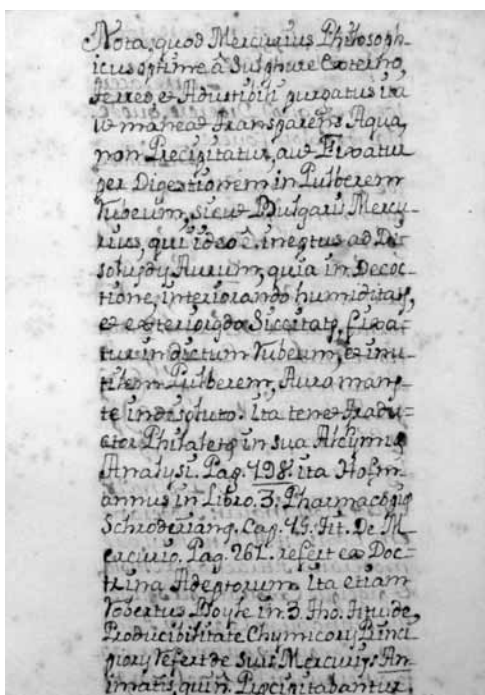 Nota, quod Mercurius Philosoph-
icus optime â Sulphure Externo,
terreo, et Adustibili purgatus ita
ut maneat transparens Aqua,
non Precipitatur, aut Fixatur
per Digestionem in Pulberem
Rubeum, sicut Bulgaris Mercu-
rius, qui ideo ê. ineptus ad Di-
Aurum, quia in Decoc-
tione, interiorando humiditatẽ,
et Siccitatẽ, fixa-
tur in dictum Rubeum, et inu-
tilem Pulberem, Auro manẽ-
te indisoluto. Ita tenet tradu-
ctor Philaletẽ in sua Alchymię
Analysi. Pag. 198. ita Hofm-
annus in Libro. 3. Pharmacopię
Schroderianę. Cap. 15. tit. De M-
ercurio. Pag. 261. refert ex Doc-
trina Adeptorum. Ita etiam
Robertus Boyle in. 3. tho. titu. de,
Producibilitate Chymicorũ Princi-
piorũ refert de suis Mercurijs An-
imatis, qui ñ. Precipitabantur